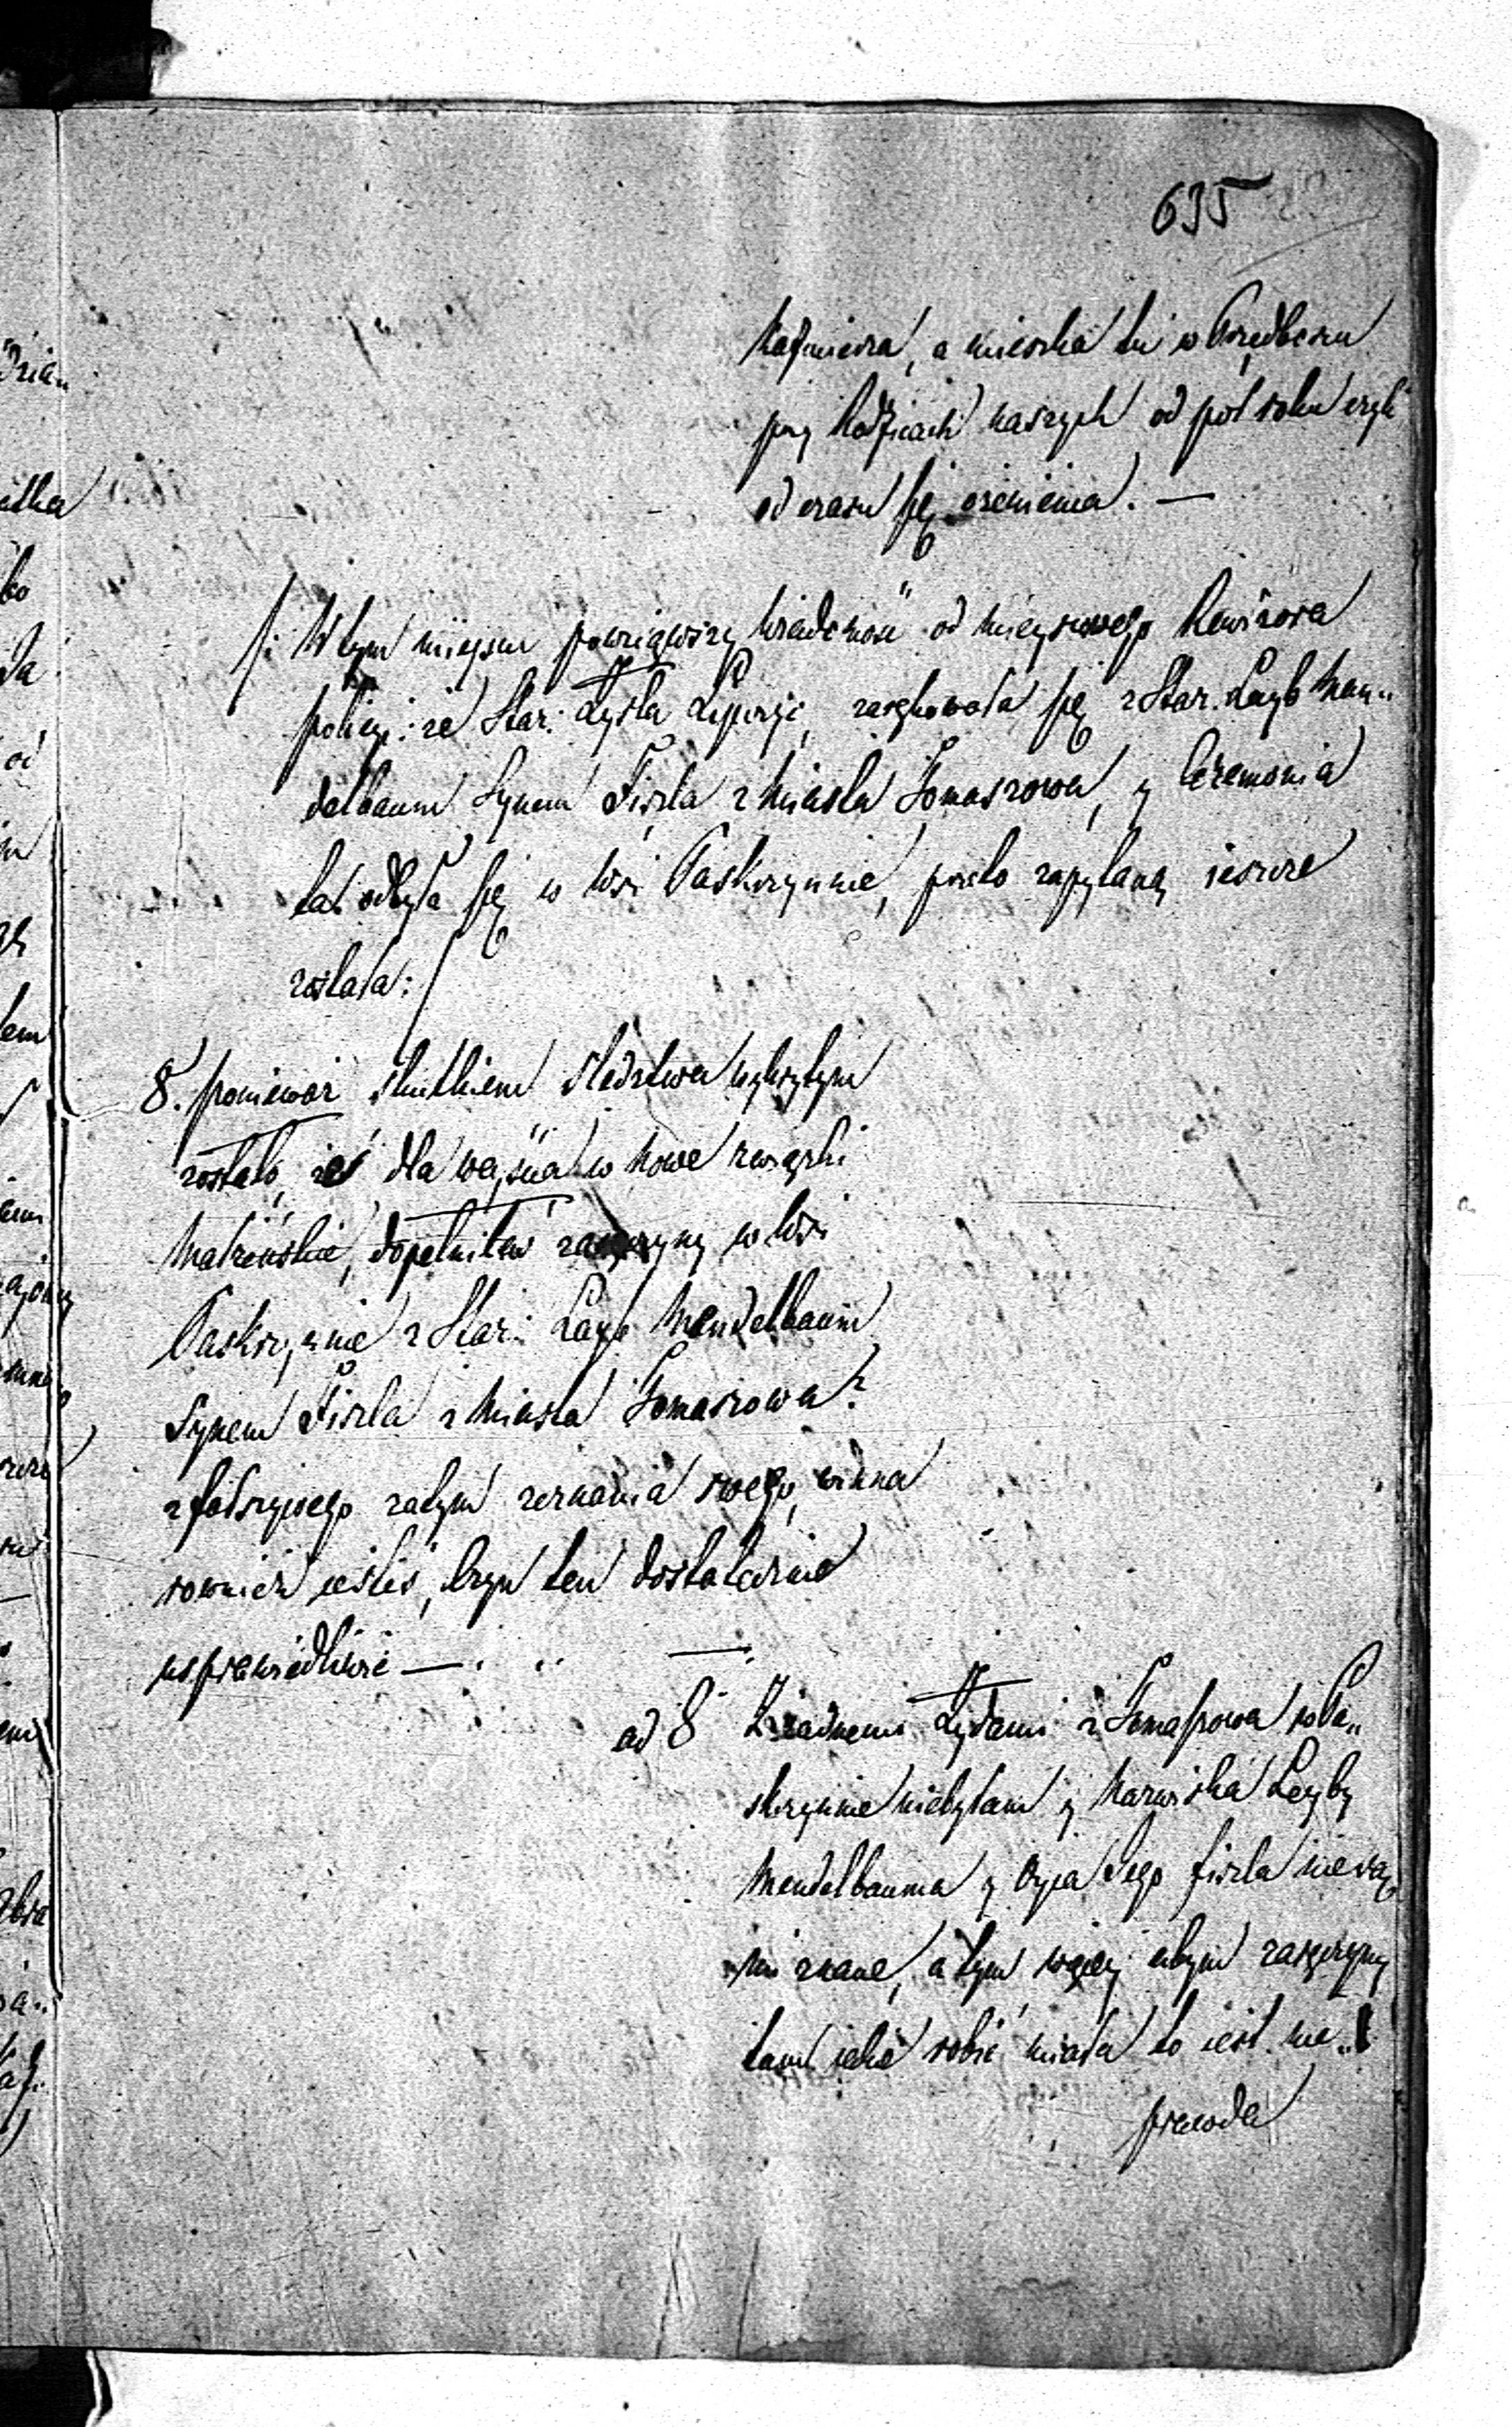 635
Kaźmierza, a mieszka tu w Przedborzu
przy Rodzicach naszych od pół roku czyli
od czasu się ożenienia. —
/: W tym miejscu powziąwszy wiadomość od mieyscowego Rewizora
policyi: że Star: Zysla zaręhowała się z Star. Leyb Men„
delbaum Synem Fiszla z Miasta Tomaszowa, y Ceremonia
ta odbyła się w Wsi Paskrzynie, przeto zapytaną ieszcze
została:/
8. ponieważ skutkiem śledztwa wykrytym
zostało, że dla weyścia w nowe związki
Małżeńskie, dopełniłaś zaręczyny w Wsi
Paskrzynie z Star: Layb Mendelbaum
Synem Fiszla z Miasta Tomaszowa?
z fałszywego zatym zeznania swego, winna
rownież iesteś, Czyn ten dostatecznie
usprawiedliwić —
ad 8 Z żadnemi Żydami z Tomaszowa w Pa„
skrzynie niebyłam y Nazwiska Leyby
Mendelbauma y Oyca Jego Fiszla nie są
mi znane, a tym więcey abym zaręczyny
tam iakie robić miała to iest nie„
prawda